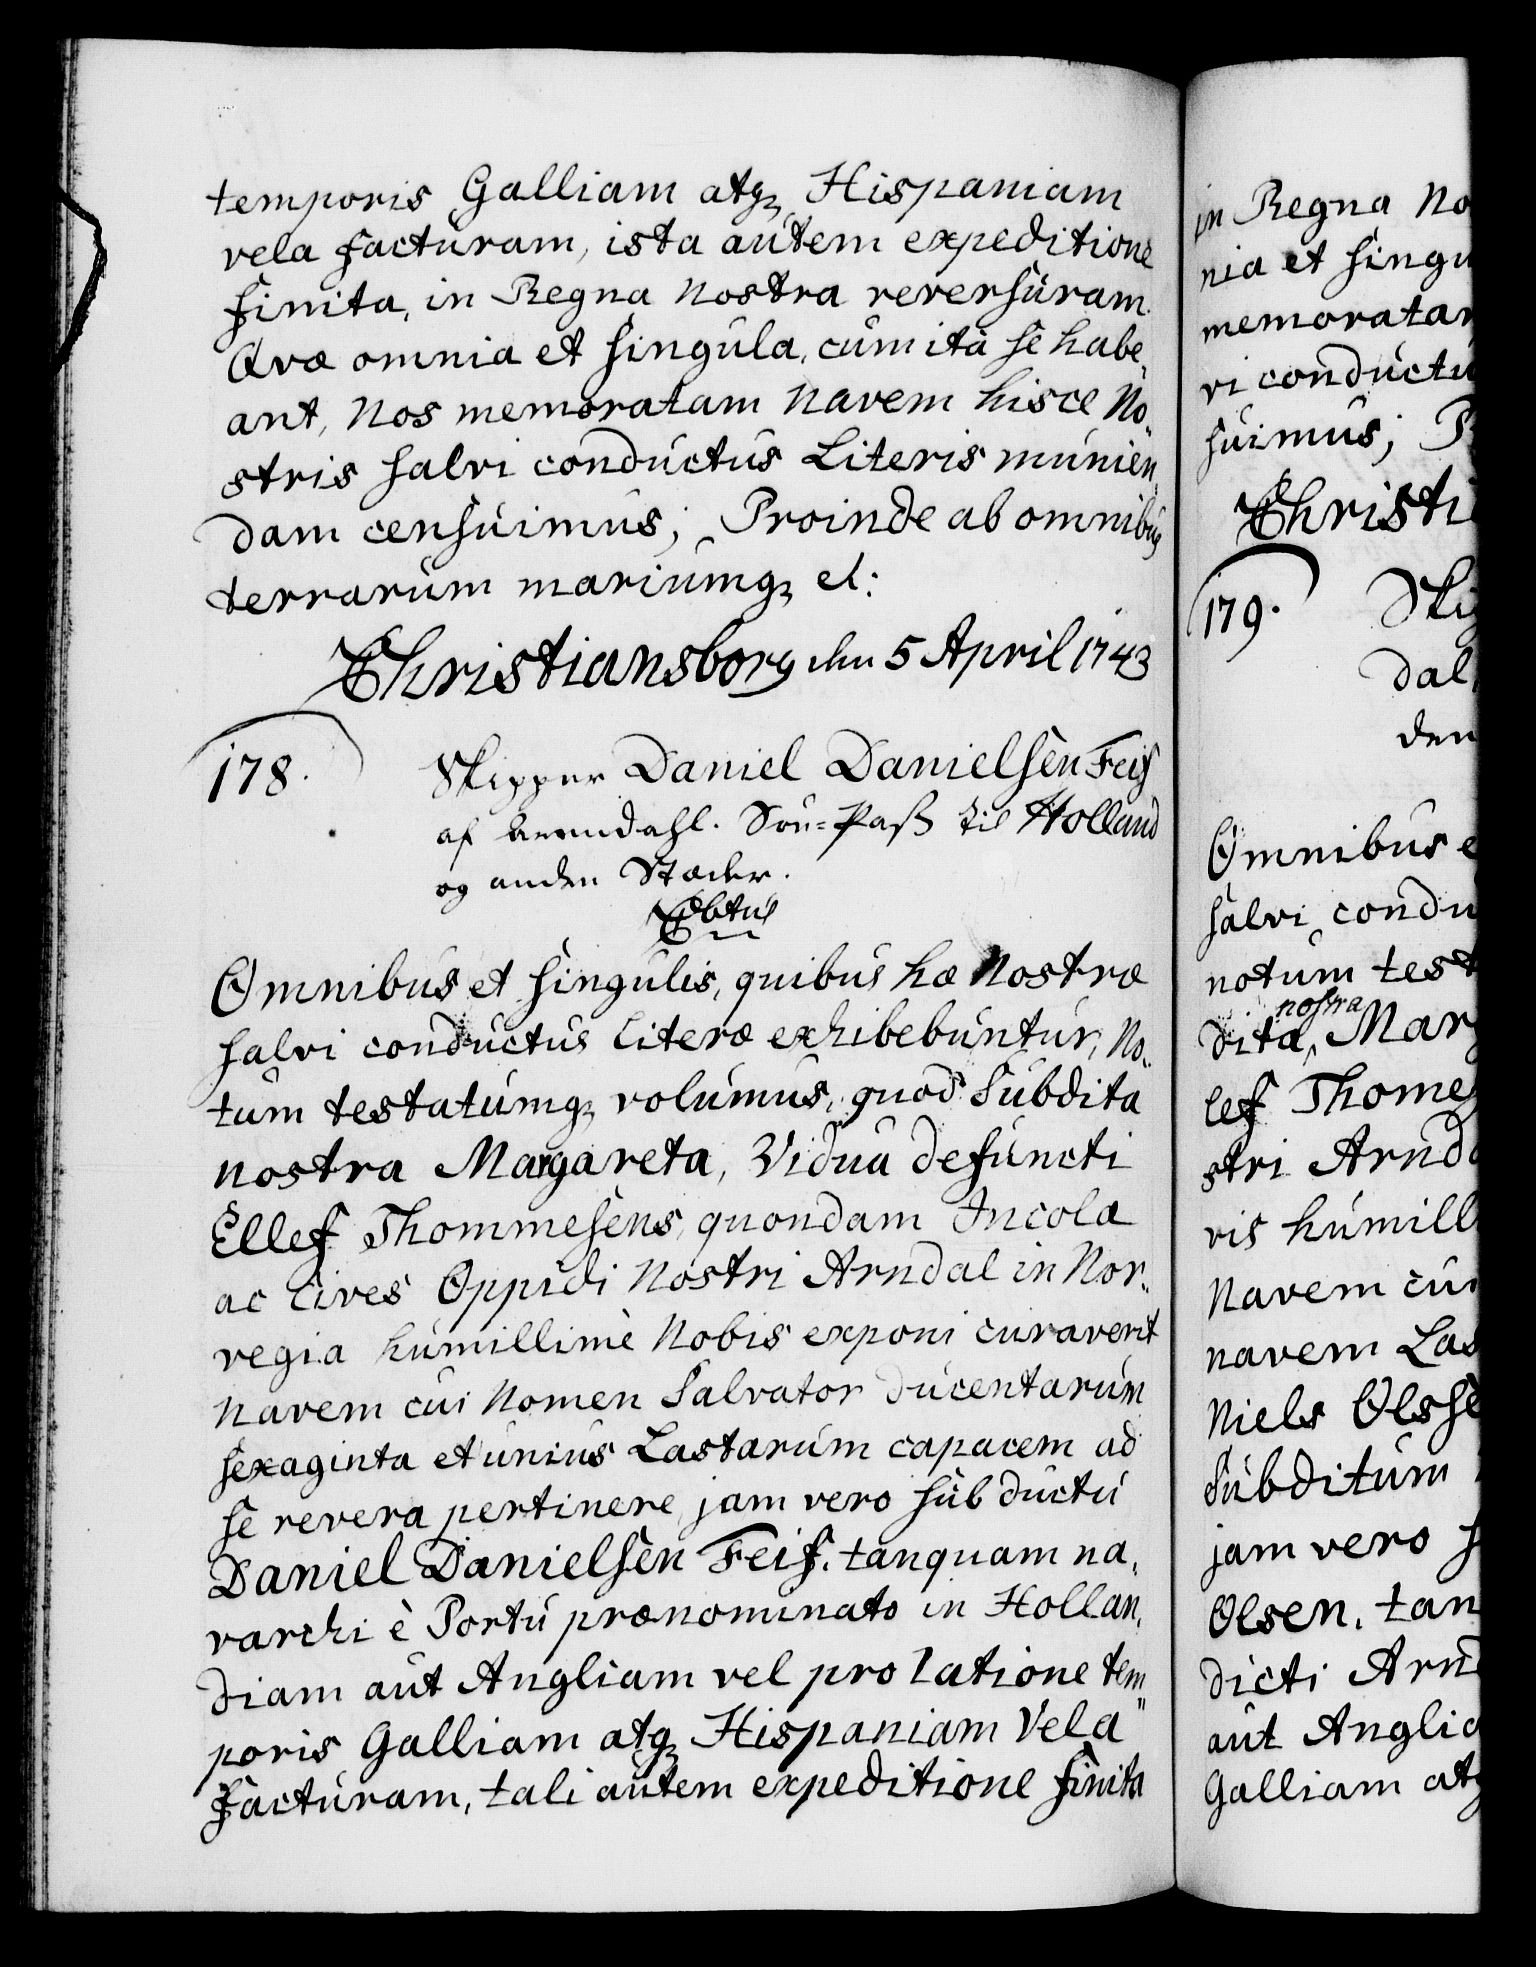 temporis Galliam atqꝫ Hispaniam
vela facturam, ista autem expeditione
finita, in Regna Nostra reversuram.
Qvæ omnia et singula, cum ita se habe„
ant, Nos memoratam Navem hisce No„
stris salvi conductus Literis munien„
dam censuimus; Proinde ab omnibus
terrarum mariumqꝫ et:
Christiansborg den 5 April 1743
178. Skipper Daniel Danielsen Feif
af Arendahl. Søe=Pass til Holland
og anden Stæder.
Omnibus et singulis, quibus hæ Nostræ
salvi conductus Literæ exhibebuntur, No„
tum testatumqꝫ volumus, quod Subdita
nostra Margareta, Vidua defuncti
Ellef Thommesens, quondam Incolæ
ac Cives Oppidi Nostri Arndal in Nor„
vegia humillimè Nobis exponi curaverit
Navem cui Nomen Salvator ducentarum
sexaginta et unius Lastarum capacem ad
se revera pertinere, jam vero sub ductu
Daniel Danielsen Feif. tanquam na„
varchi è Portu prænominato in Hollan„
diam aut Angliam vel pro ratione tem„
poris Galliam atqꝫ Hispaniam Vela
facturam, tali autem expeditione finita
in Regna No
nia et singu
memoratam
vi conductu
suimus; P
Christi
179. Ski
dal
den
Omnibus e
salvi condu
notum test
nostra
dita, Mar
lef Thomes
stri Arnda
vis humill
Navem cui
navem Las
Niels Olsse
Subditum
jam vero s
Olsen, tan
dicti Arn
aut Anglia
Galliam atq